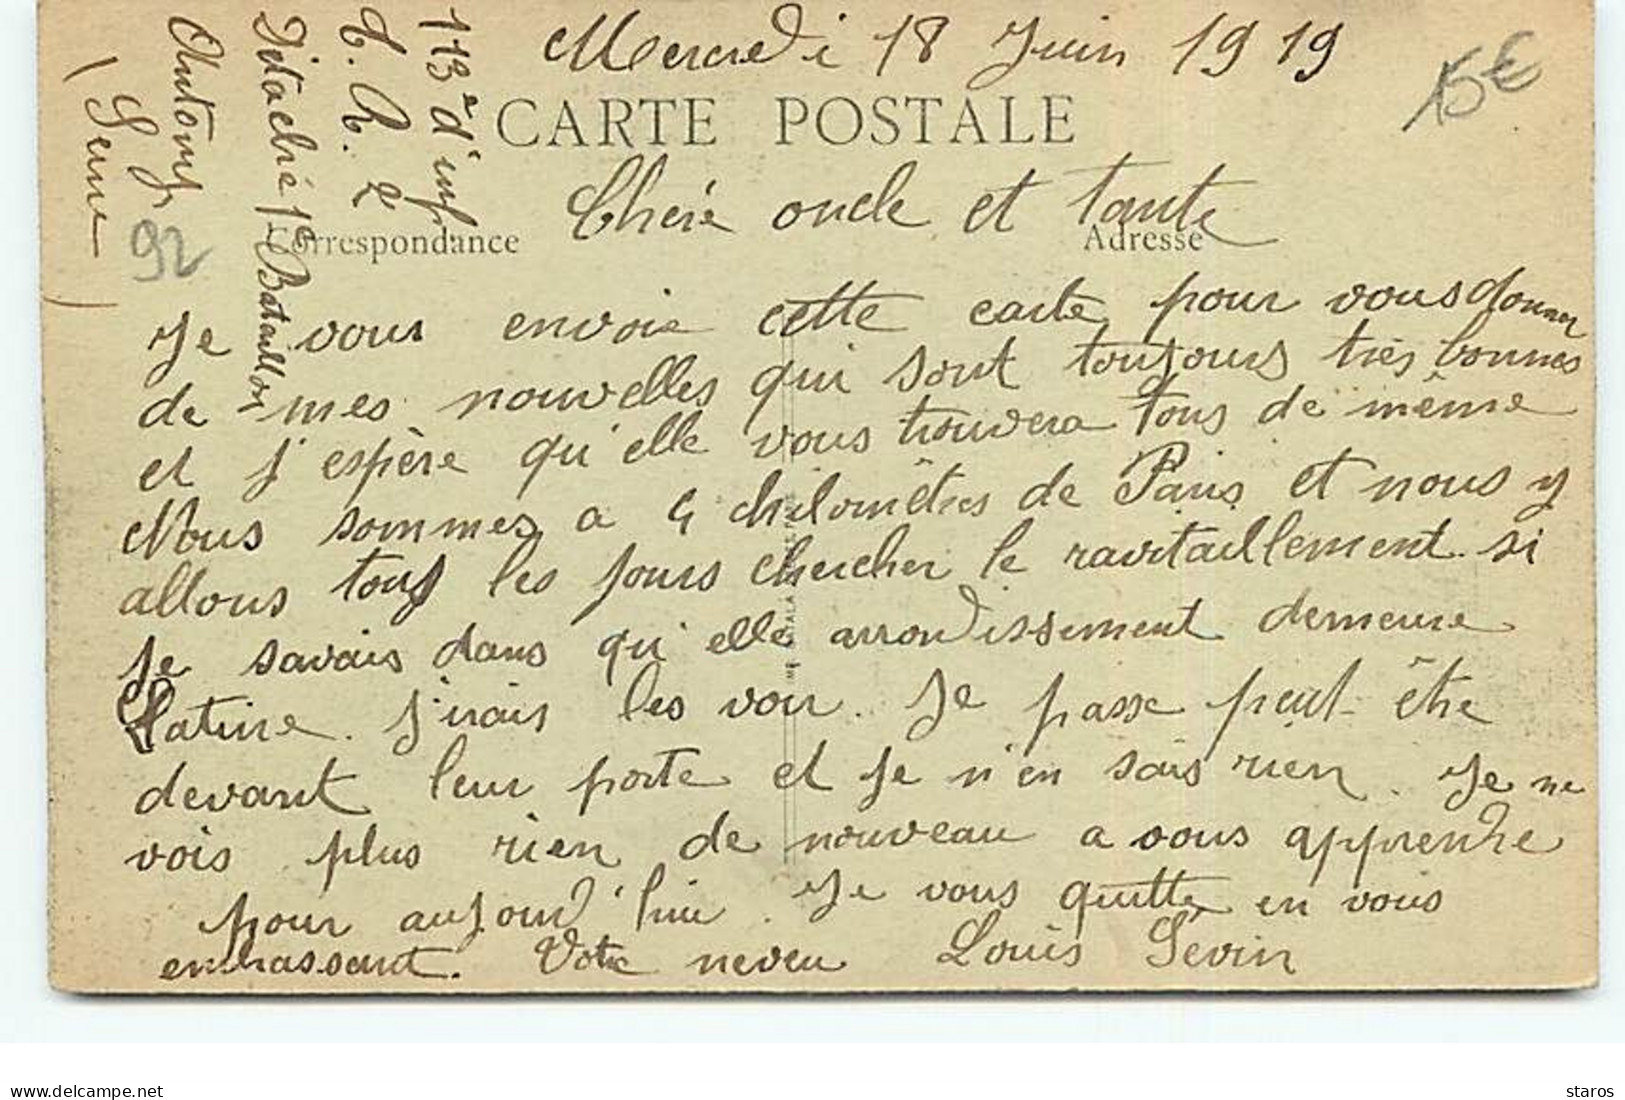 Mercredi 18 Juin 1919
15€
CARTE POSTALE
113e d'inf.
C. R. 2
Détaché 1e Bataillon
Antony
( Seine )
92
Correspondance
Adresse
Chère oncle et Tante
Je vous envoie cette carte pour vous donner
de mes nouvelles qui sont toujours très bonnes
et j'espère qu'elle vous trouvera tous de même
Nous sommes a 4 chilomêtres de Paris et nous y
allons tous les jours chercher le ravitaillement. si
je savais dans qu'elle arrondissement demeure
j'irais les voir. Je passe peut-être
devant leur porte et je n'en sais rien. Je ne
vois plus rien de nouveau a vous apprendre
pour aujourd'hui. Je vous quitte en vous
embrassant. Votre neveu Louis Sévin
www.delcampe.net
staros